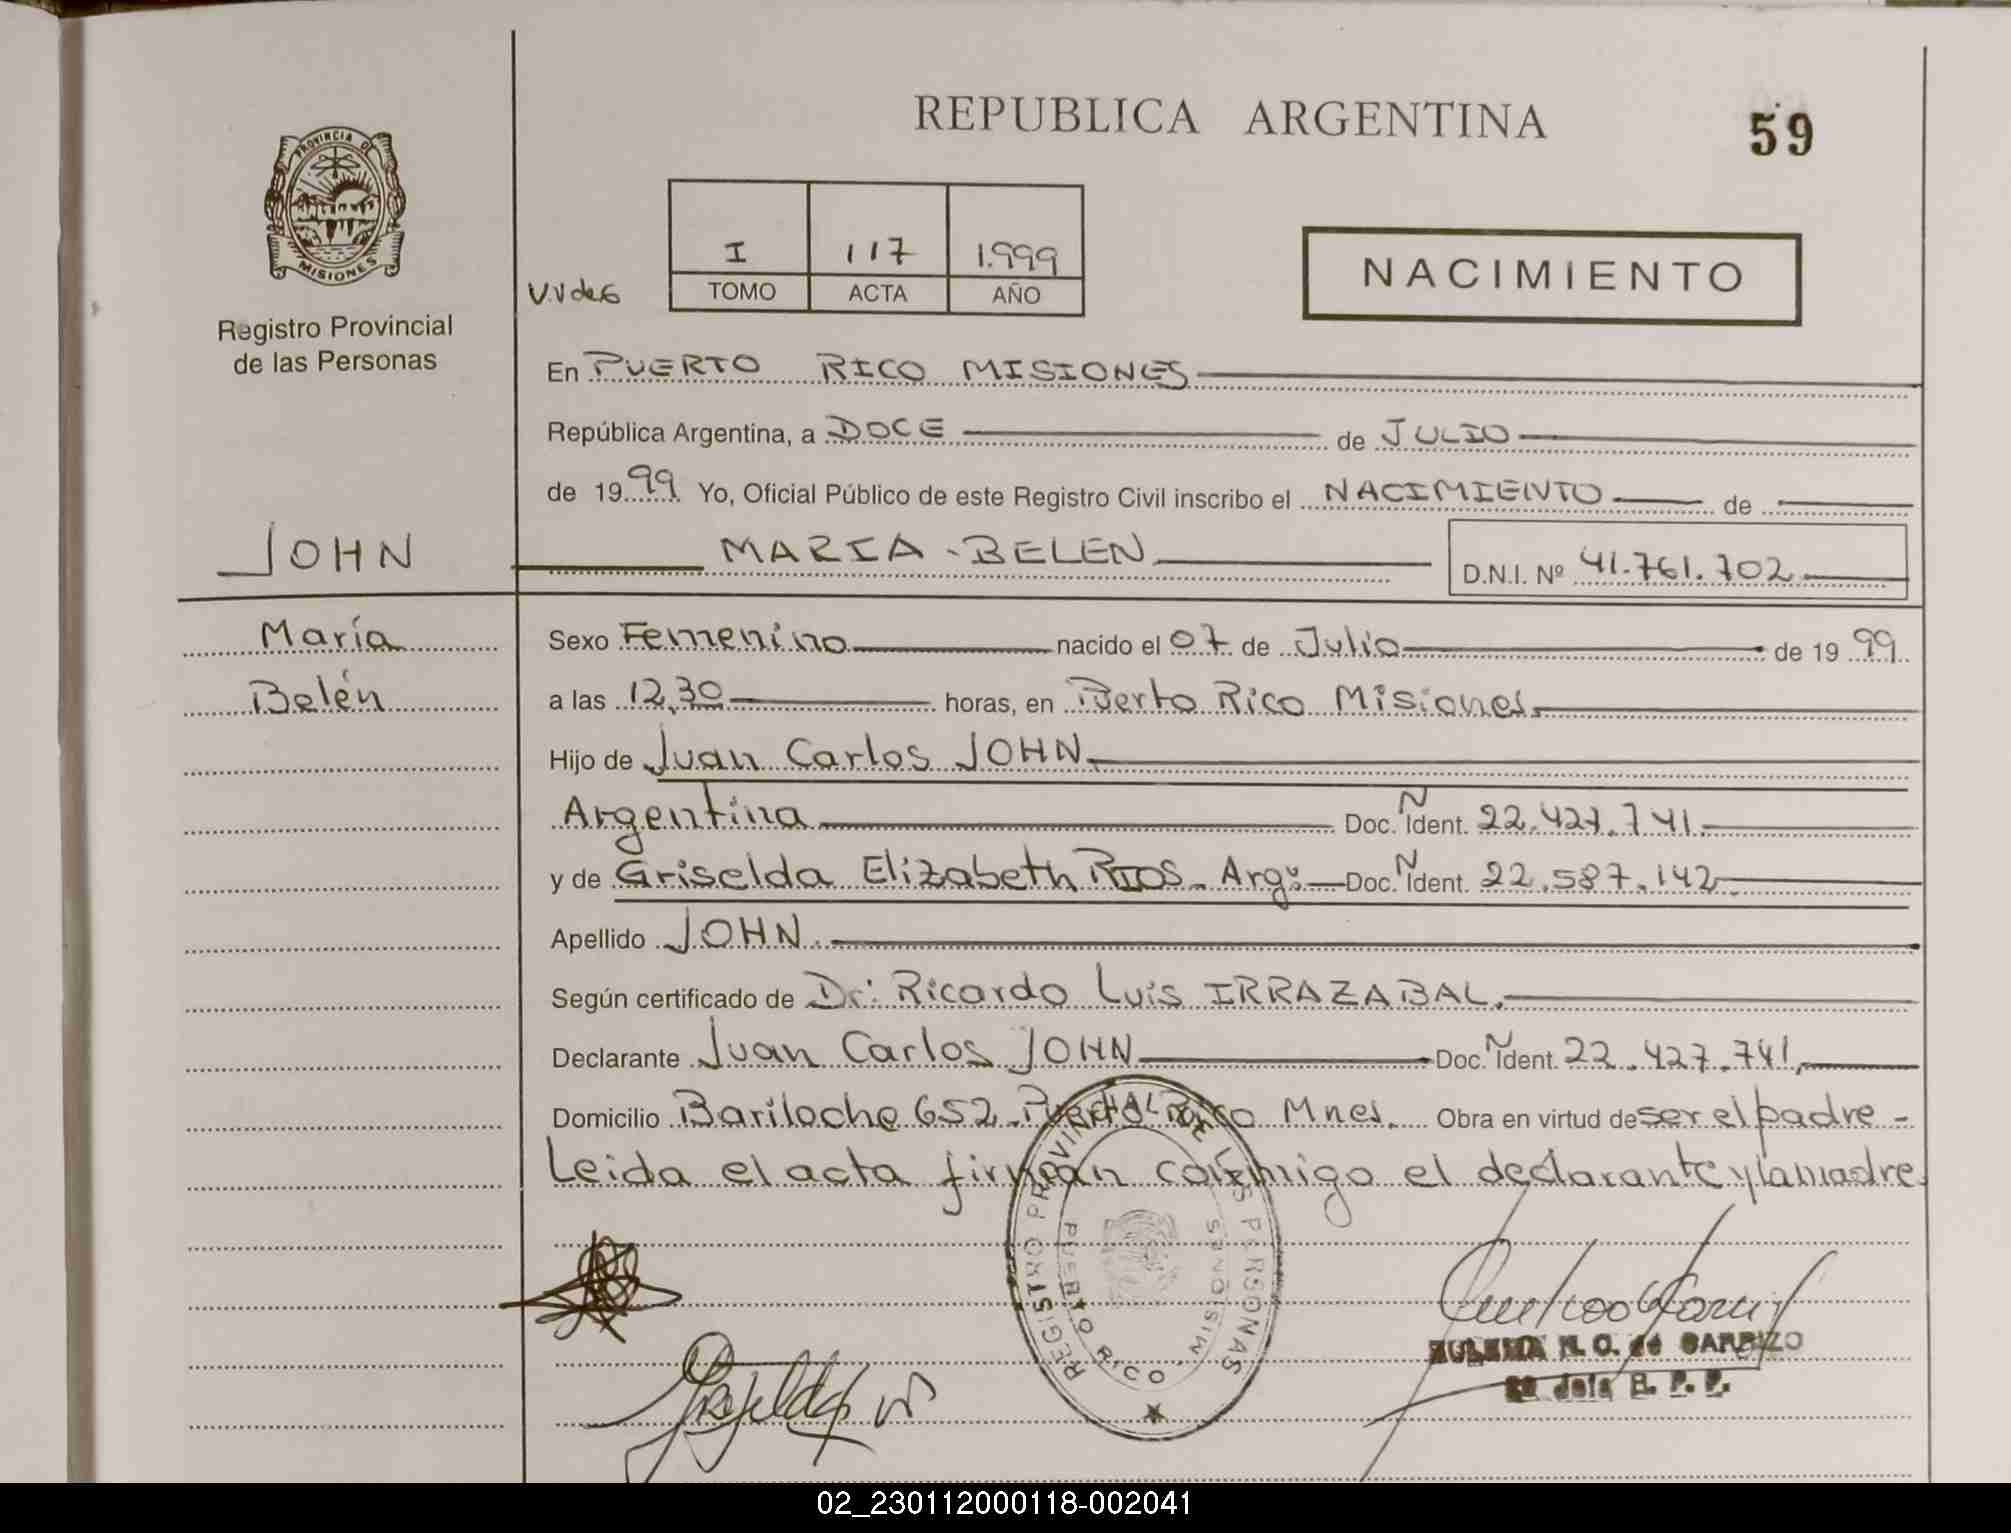 REPUBLICA ARGENTINA
59
PROVINCIA DE
MISIONES
Registro Provincial
de las Personas
V.V de 6
I 117 1.999
TOMO ACTA AÑO
NACIMIENTO
En PUERTO RICO MISIONES
República Argentina, a DOCE de JULIO
de 1999 Yo, Oficial Público de este Registro Civil inscribo el NACIMIENTO de
JOHN MARIA BELEN D.N.I. Nº 41.761.702
María
Belén
Sexo Femenino nacido el 07 de Julio de 1999
a las 12,30 horas, en Puerto Rico Misiones.
Hijo de Juan Carlos JOHN.
Argentina Doc. N Ident. 22.427.741
y de Griselda Elizabeth RIOS. Arg. Doc. N Ident. 22.587.142
Apellido JOHN.
Según certificado de Dr. Ricardo Luis IRRAZABAL.
Declarante Juan Carlos JOHN Doc. N Ident. 22.427.741,
Domicilio Bariloche 652. Puerto Rico Mnes. Obra en virtud de ser el padre -
Leida el acta firman conmigo el declarante y la madre.
REGISTRO PROVINCIAL DE LAS PERSONAS
PUERTO RICO - MISIONES
N. O. de CARRIZO
R. P. P.
02_230112000118-002041